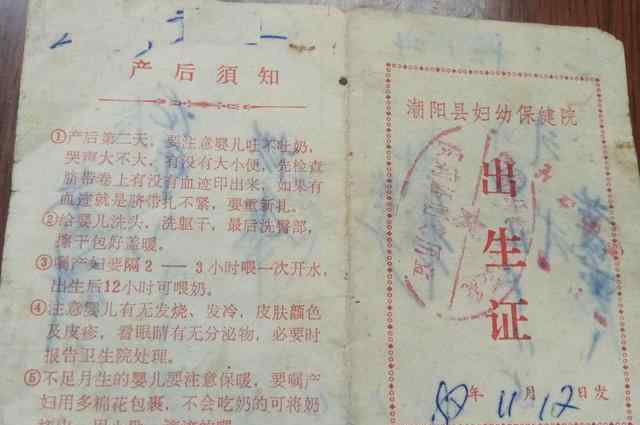 产后須知
①产后第二天，要注意婴儿吐不吐奶，
哭声大不大，有没有大小便，先检查
脐带卷上有没有血迹印出来，如果有
血迹就是脐带扎不紧，要重新扎。
②给婴儿洗头，洗躯干，最后洗臀部，
擦干包好盖暖。
③嘱产妇要隔2——3小时喂一次开水，
出生后12小时可喂奶。
④注意婴儿有无发烧、发冷，皮肤颜色
及皮疹，看眼睛有无分泌物，必要时
报告卫生院处理。
⑤不足月生的婴儿要注意保暖，要嘱产
妇用多棉花包裹，不会吃奶的可将奶
潮阳县妇幼保健院
出生证
年11月12日发